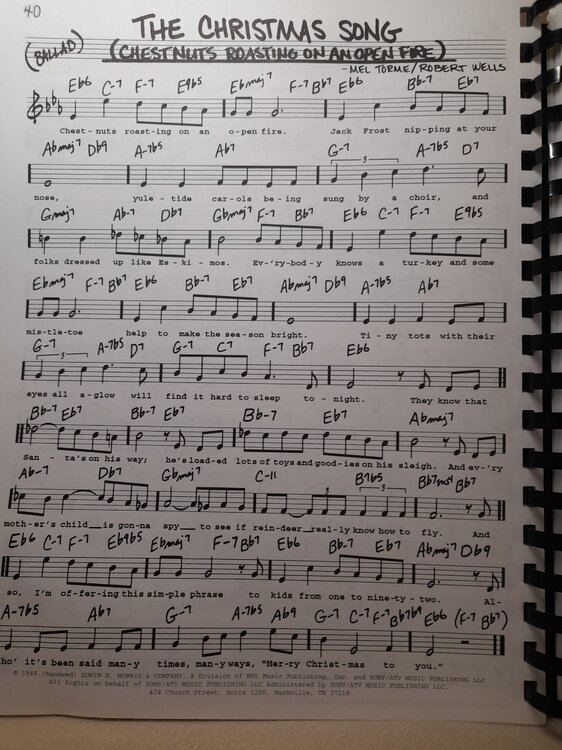 40
THE CHRISTMAS SONG
(BALLAD)
(CHESTNUTS ROASTING ON AN OPEN FIRE)
-MEL TORME/ROBERT WELLS
Eb6 C-7 F-7 E9b5 Ebmaj7 F-7 Bb7 Eb6 Bb-7 Eb7
Chest-nuts roast-ing on an o-pen fire. Jack Frost nip-ping at your
Abmaj7 Db9 A-7b5 Ab7 G-7 A-7b5 D7
3
nose, yule-tide car-ols be-ing sung by a choir, and
Gmaj7 Ab-7 Db7 Gbmaj7 F-7 Bb7 Eb6 C-7 F-7 E9b5
folks dressed up like Es-ki-mos. Ev-'ry-bod-y knows a tur-key and some
Ebmaj7 F-7 Bb7 Eb6 Bb-7 Eb7 Abmaj7 Db9 A-7b5 Ab7
mis-tle-toe help to make the sea-son bright. Ti-ny tots with their
G-7 A-7b5 D7 G-7 C7 F-7 Bb7 Eb6
3
eyes all a-glow will find it hard to sleep to-night. They know that
Bb-7 Eb7 Bb-7 Eb7 Bb-7 Eb7 Abmaj7
San-ta's on his way; he's load-ed lots of toys and good-ies on his sleigh. And ev-'ry
Ab-7 Db7 Gbmaj7 C-11 B7b5 Bb7sus4 Bb7
3 3 3
moth-er's child is gon-na spy to see if rein-deer real-ly know how to fly. And
Eb6 C-7 F-7 E9b5 Ebmaj7 F-7 Bb7 Eb6 Bb-7 Eb7 Abmaj7 Db9
so, I'm of-fer-ing this sim-ple phrase to kids from one to nine-ty-two. Al-
A-7b5 Ab7 G-7 A-7b5 Ab9 G-7 C-7 F-7 Bb7b9 Eb6 (F-7 Bb7)
ho' it's been said man-y times, man-y ways, "Mer-ry Christ-mas to you."
© 1946 (Renewed) EDWIN H. MORRIS & COMPANY, A Division of MPL Music Publishing, Inc. and SONY/ATV MUSIC PUBLISHING LLC
All Rights on behalf of SONY/ATV MUSIC PUBLISHING LLC Administered by SONY/ATV MUSIC PUBLISHING LLC,
424 Church Street, Suite 1200, Nashville, TN 37219